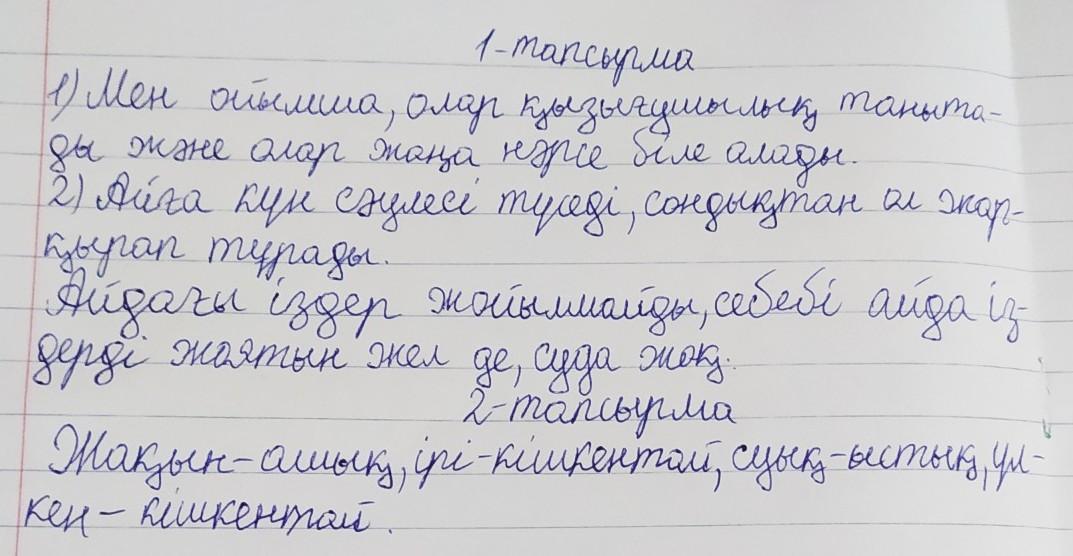 1-тапсырма
1) Мен ойымша, олар қызығушылық таныта-
ды және олар жаңа нәрсе біле алады.
2) Айға күн сәулесі түседі, сондықтан ол жар-
қырап тұрады.
Айдағы іздер жойылмайды, себебі айда із-
дерді жоятын жел де, суда жоқ.
2-тапсырма
Жақын-алшық, ірі-кішкентай, суық-ыстық, үл-
кен-кішкентай.